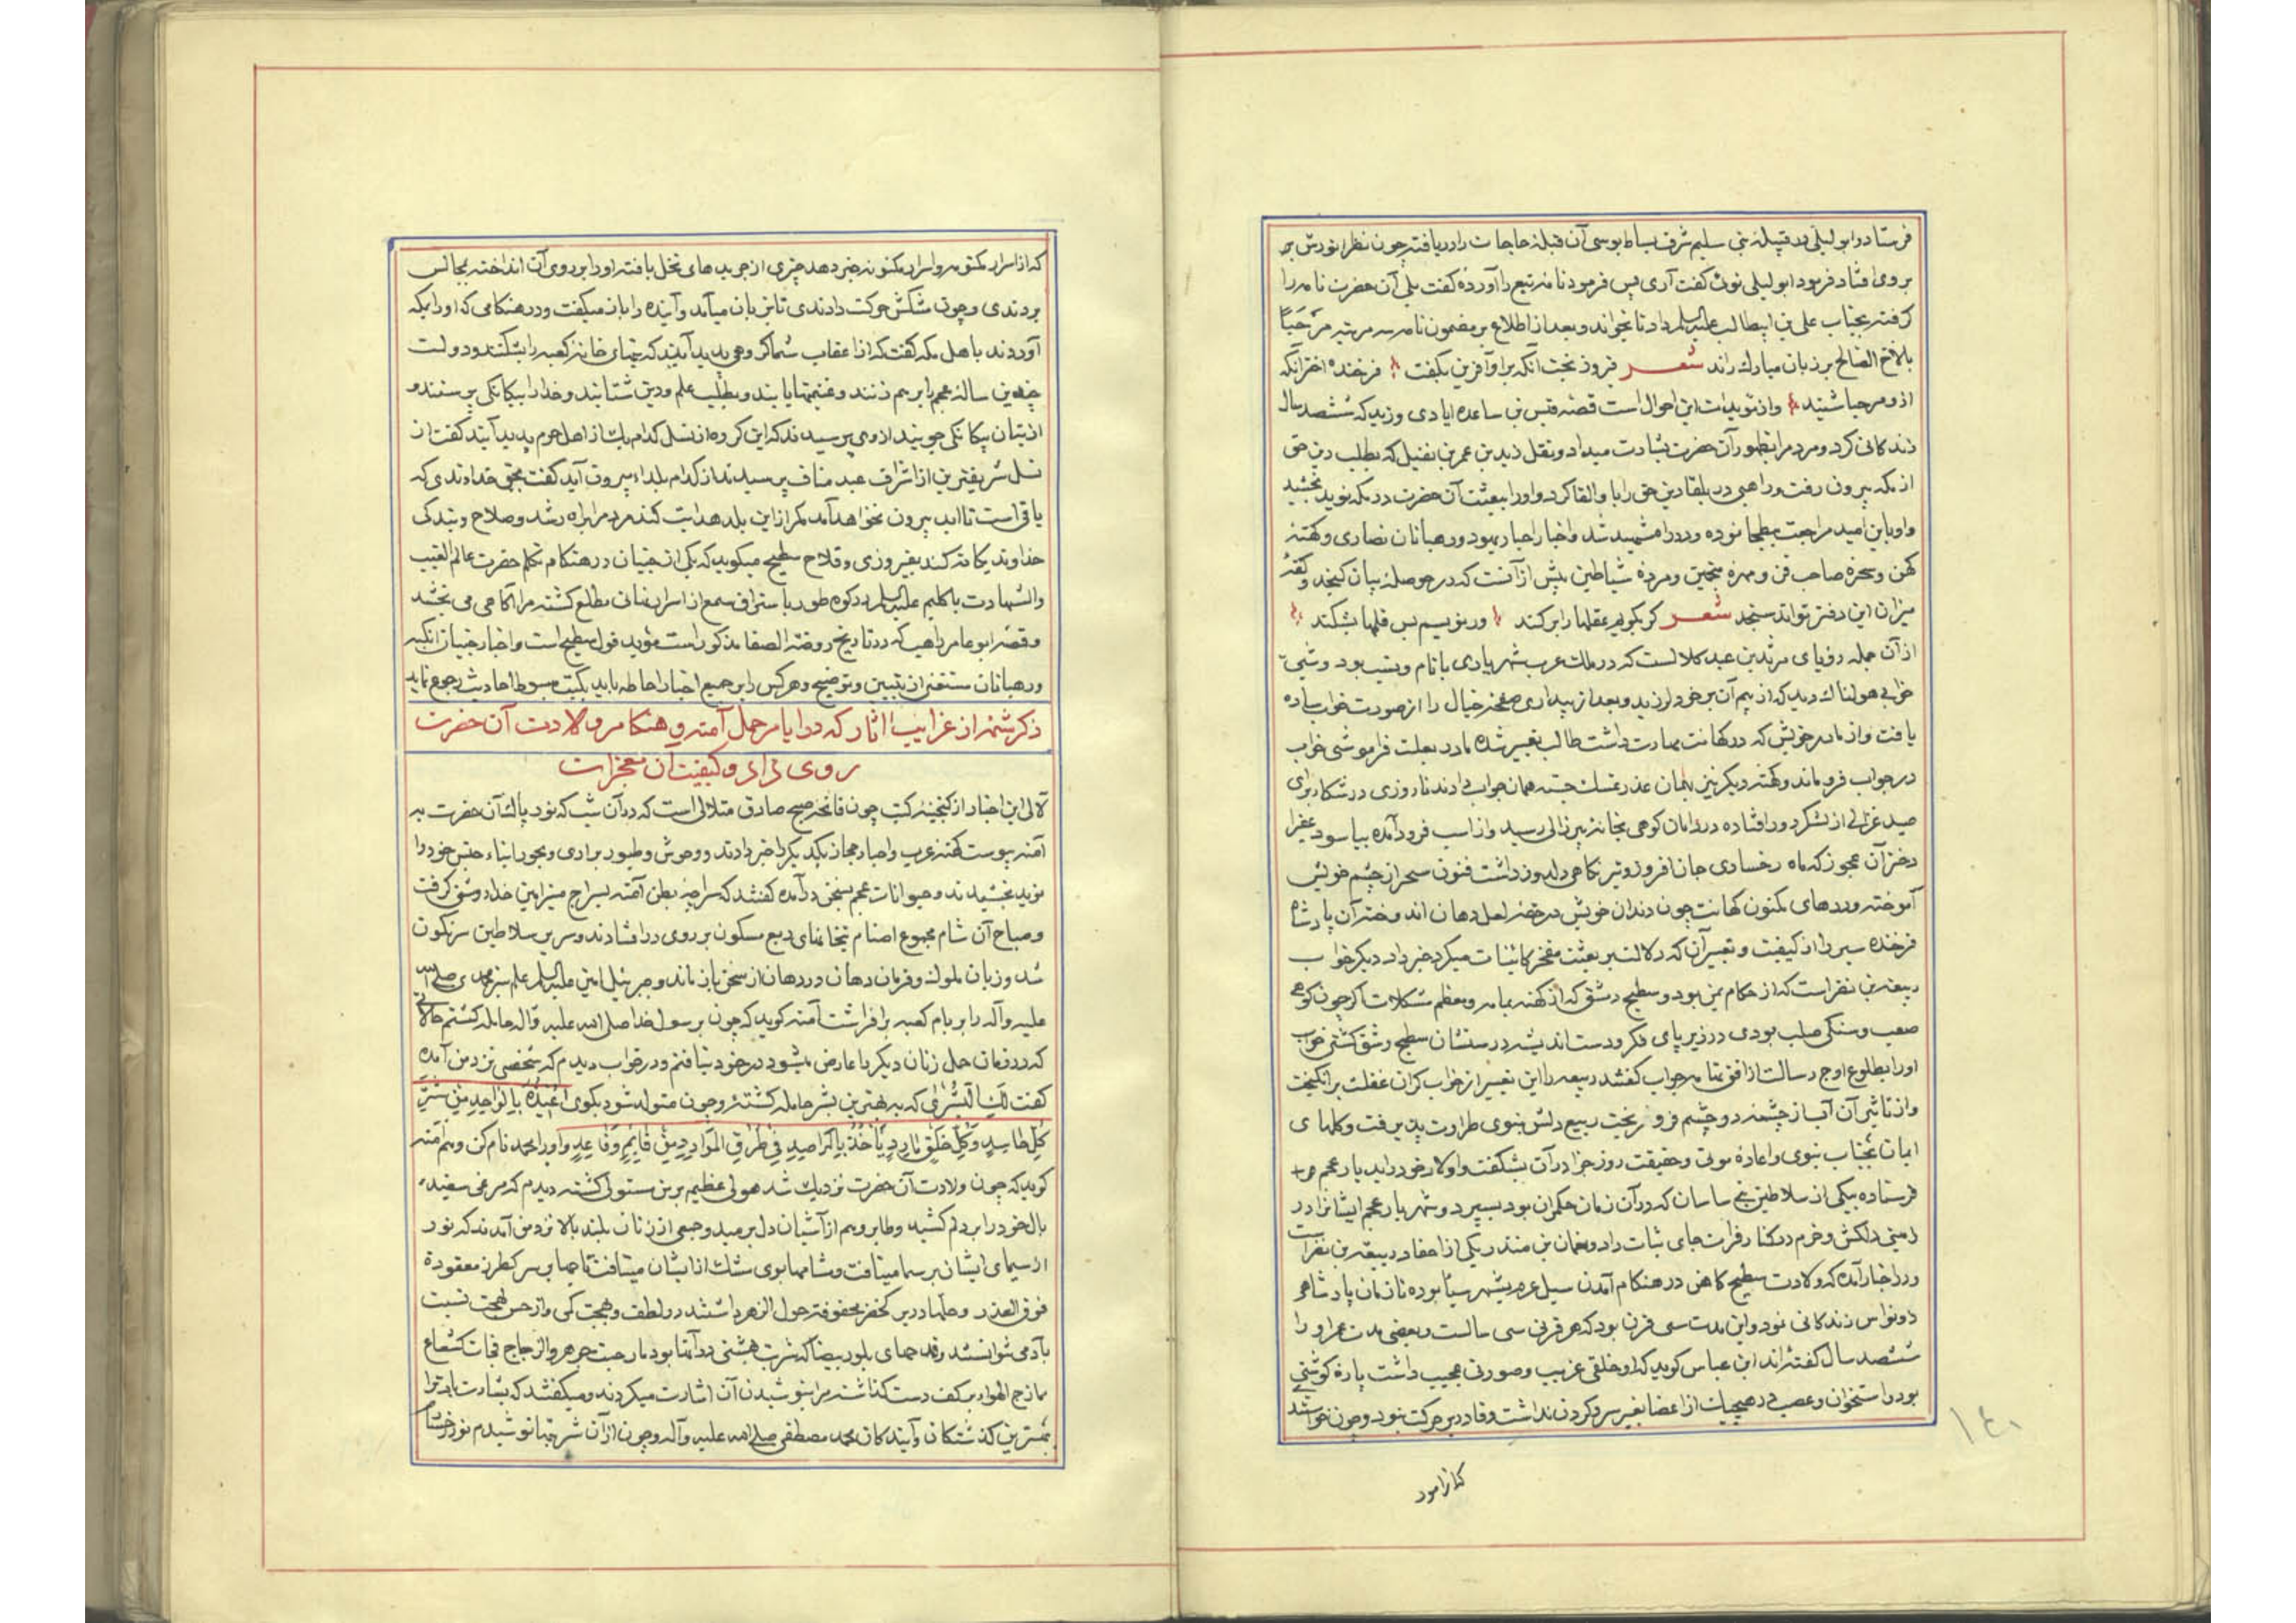 فرستاد و ابو لیلی در قبیلهٔ بنی سلیم شرف بساط بوسی آن قبلهٔ حاجات را دریافته چون نظر انورش بر
بروی افتاد فرمود ابو لیلی توئی گفت آری پس فرمود نامه تبع را آوردهٔ گفت بلی آن حضرت نامه را
گرفته بجناب علی بن ابیطالب علیه السلم داد تا بخواند و بعد از اطلاع بر مضمون نامه سه مرتبه مرحباً
بالاخ الصالح بر زبان مبارک راند شعر فیروز بخت آنکه بر او آفرین بگفت فرخنده اختر آنکه
از و مرحبا شنید و از مؤیدات این احوال است قصهٔ قیس بن ساعده ایادی وزید که ششصد سال
زندگانی کرد و مردم را بظهور آن حضرت بشارت میداد و نقل زید بن عمر بن نفیل که بطلب دین حق
از مکه بیرون رفت و راهبی در بلقا دین حق را با و القا کرد و او را ببعثت آن حضرت در مکه نوید بخشید
و او باین امید مراجعت ببطحا نوده و در راه شهید شد و اخبار احبار یهود و رهبانان نصاری و کهنهٔ
کهن و سحرهٔ صاحب فن و مهرهٔ منجمین و مردهٔ شیاطین بیش از آنست که در حوصلهٔ بیان گنجد و کفهٔ
میزان این دفتر تواند سنجد شعر گر بگویم عقلها را بر کند ور نویسم بس قلمها بشکند
از آن جمله رؤیای مرثد بن عبد کلالست که در ملک عرب شهریاری با نام و نسب بود و شبی
خوابی هولناک دید که از بیم آن بر خود لرزید و بعد از بیداری صفحهٔ خیال را از صورت خواب ساده
یافت و از مادر خویش که در کهانت مهارت داشت طالب تعبیر شده مادر بعلت فراموشی خواب
در جواب فرو ماند و کهنهٔ دیگر نیز بهمان عذر تمسک جسته همان جواب دادند تا روزی در شکار برای
صید غزالی از لشکر دور افتاده در دامان کوهی بخانهٔ پیر زالی رسید و از اسب فرود آمده بیاسود عفرا
دختر آن عجوز که ماه رخساری جان افروز و تیر نگاهی دلدوز داشت فنون سحر از چشم خویش
آموخته و درهای مکنون کهانت چون دندان خویش در حقهٔ لعل دهان اندوخته آن پادشاه
فرخنده سیر را از کیفیت و تعبیر آن که دلالت بر بعثت مفخر کائنات میکرد خبر داد دیگر خواب
ربیعه بن نضر است که از حکام یمن بود و سطیح دمشق که از کهنهٔ یمامه و معظم مشکلات اگر چون کوهی
صعب و سنگی صلب بودی در زیر پای فکر و دست اندیشه در سنشان سطیح و شق گشتی خواب
او را بطلوع اوج رسالت از افق تهامه جواب گفتند ربیعه را این تعبیر از خواب گران غفلت بر انگیخت
و از تاثیر آن آب از چشمه دو چشم فرو ریخت ربیع دلش بنوی طراوت پذیرفت و گلهای
ایمان بجناب نبوی و اعادهٔ موتی و حقیقت روز جزا در آن بشگفت و اولاد خود را بدیار عجم
فرستاده بیکی از سلاطین بنی ساسان که در آن زمان حکمران بود بسپرد و شهریار عجم ایشانرا در
زمینی دلکش و خرم در کنار فرات جای ثبات داد و نعمان بن منذر یکی از احفاد ربیعه بن نضر است
و در اخبار آمده که ولادت سطیح کاهن در هنگام آمدن سیل عرم بشهر سبا بوده تا زمان پادشاهی
ذو نواس زندگانی نود و این مدت سی قرن بود که هر قرنی سی سالست و بعضی مدت عمر او را
ششصد سال گفته اند ابن عباس گوید که او خلقی غریب و صورتی عجیب داشت پارهٔ گوشتی
بود و استخوان و عصبی در هیچیک از اعضا بغیر سر و گردن نداشت و قادر بر حرکت نبود و چون خواستند
که از امور
۱۴۱
که از اسرار مکتومه و اسرار مکنونه خبر دهد چیزی از جریدهای نخل بافته او را بر روی آن انداخته بمجالس
بردندی و چون مشکش حرکت دادندی تا بزبان میآمد و آینده را باز میگفت و در هنگامی که او را بمکه
آوردند با اهل مکه گفت که از اعقاب شما گروهی پدید آیند که بتهای خانهٔ کعبه را بشکنند و دولت
چندین سالهٔ عجم را بر هم زنند و غنیمتها یابند و بطلب علم و دین شتابند و خدا را بیگانگی پرستند و
از بتان بیگانگی جویند از وی پرسیدند که این گروه از نسل کدام یک از اهل حرم پدید آیند گفت از
نسل شریفترین از اشراف عبد مناف پرسیدند از کدام بلد او بیرون آید گفت بحق خداوندی که
باقی است تا ابد بیرون نخواهد آمد مگر از این بلد هدایت کند مردم را براه رشد و صلاح و بندگی
خداوند یگانه کند بفیروزی و فلاح سطیح میگوید که یکی از جنیان در هنگام تکلم حضرت عالم الغیب
والشهادت با کلیم علیه السلم در کوه طور باستراق سمع از اسرار نهانی مطلع گشته مرا آگاهی می بخشد
و قصهٔ ابو عامر راهب که در تاریخ روضة الصفا مذکور است مؤید قول سطیح است و اخبار جنیان از کهنه
و رهبانان مستغنی از تبیین و توضیح و هر کس را بر جمیع اخبار احاطه باید بکتب مبسوط احادیث رجوع نماید
ذکر شمهٔ از غرایب آثار که در ایام حمل آمنه و هنگام ولادت آن حضرت
روی داد و کیفیت آن معجزات
لآلی این اخبار از گنجینهٔ کتب چون فاتحهٔ صبح صادق متلالی است که در آن شب که نور پاک آن حضرت به
آمنه پیوست کهنهٔ عرب و احبار حجاز یکدیگر را خبر دادند و وحوش و طیور براری و بحور ابناء جنس خود را
نوید بخشیدند و حیوانات عجم بسخن در آمده گفتند که سراچهٔ بطن آمنه بسراج منیر امین خدا روشنی گرفت
و صباح آن شام مجموع اصنام بتخانهای ربع مسکون بر روی در افتادند و سریر سلاطین سرنگون
شد و زبان ملوک و فرمان دهان در دهان از سخن باز ماند و جبرئیل امین علیه السلم علم سبز محمدی صلی الله
علیه و آله را بر بام کعبه بر افراشت آمنه گوید که چون برسول خدا صلی الله علیه و آله حامله گشتم حالاتی
که در زمان حمل زنان دیگر را عارض میشود در خود نیافتم و در خواب دیدم که شخصی نزد من آمده
گفت لک البشری که به بهترین بشر حامله گشتهٔ و چون متولد شود بگوی اعیذه بالواحد من شر
کل حاسد و کل خلق مارد یأخذ بالمراصد فی طرق الموارد من قایم و قاعد و او را محمد نام کن و هم آمنه
گوید که چون ولادت آن حضرت نزدیک شد هولی عظیم بر من مستولی گشته دیدم که مرغی سفید
بال خود را بر دلم کشید و طایر وهم از آشیان دل برمید و جمعی از زنان بلند بالا نزد من آمدند که نور
از سیمای ایشان بر سما میتافت و مشامها بوی مشک از ایشان میتافت تاجها بر سر کطرز معقودة
فوق العذر و حلها در بر کخضر محفوفة حول الزهر داشتند در لطف و بهجت کمی و از حسن لهجت نسبت
بآدمی نتوانستند و قدحهای بلور بیضا که شربت بهشتی در آنها بود مارجت جرهر و الزجاج فجات کشعاع
مازج الهوا بر کف دست گذاشته مرا بنوشیدن آن اشارت میکردند و میگفتند که بشارت باد ترا
ببهترین گذشتگان و آیندگان محمد مصطفی صلی الله علیه و آله و چون از آن شربتها نوشیدم نور